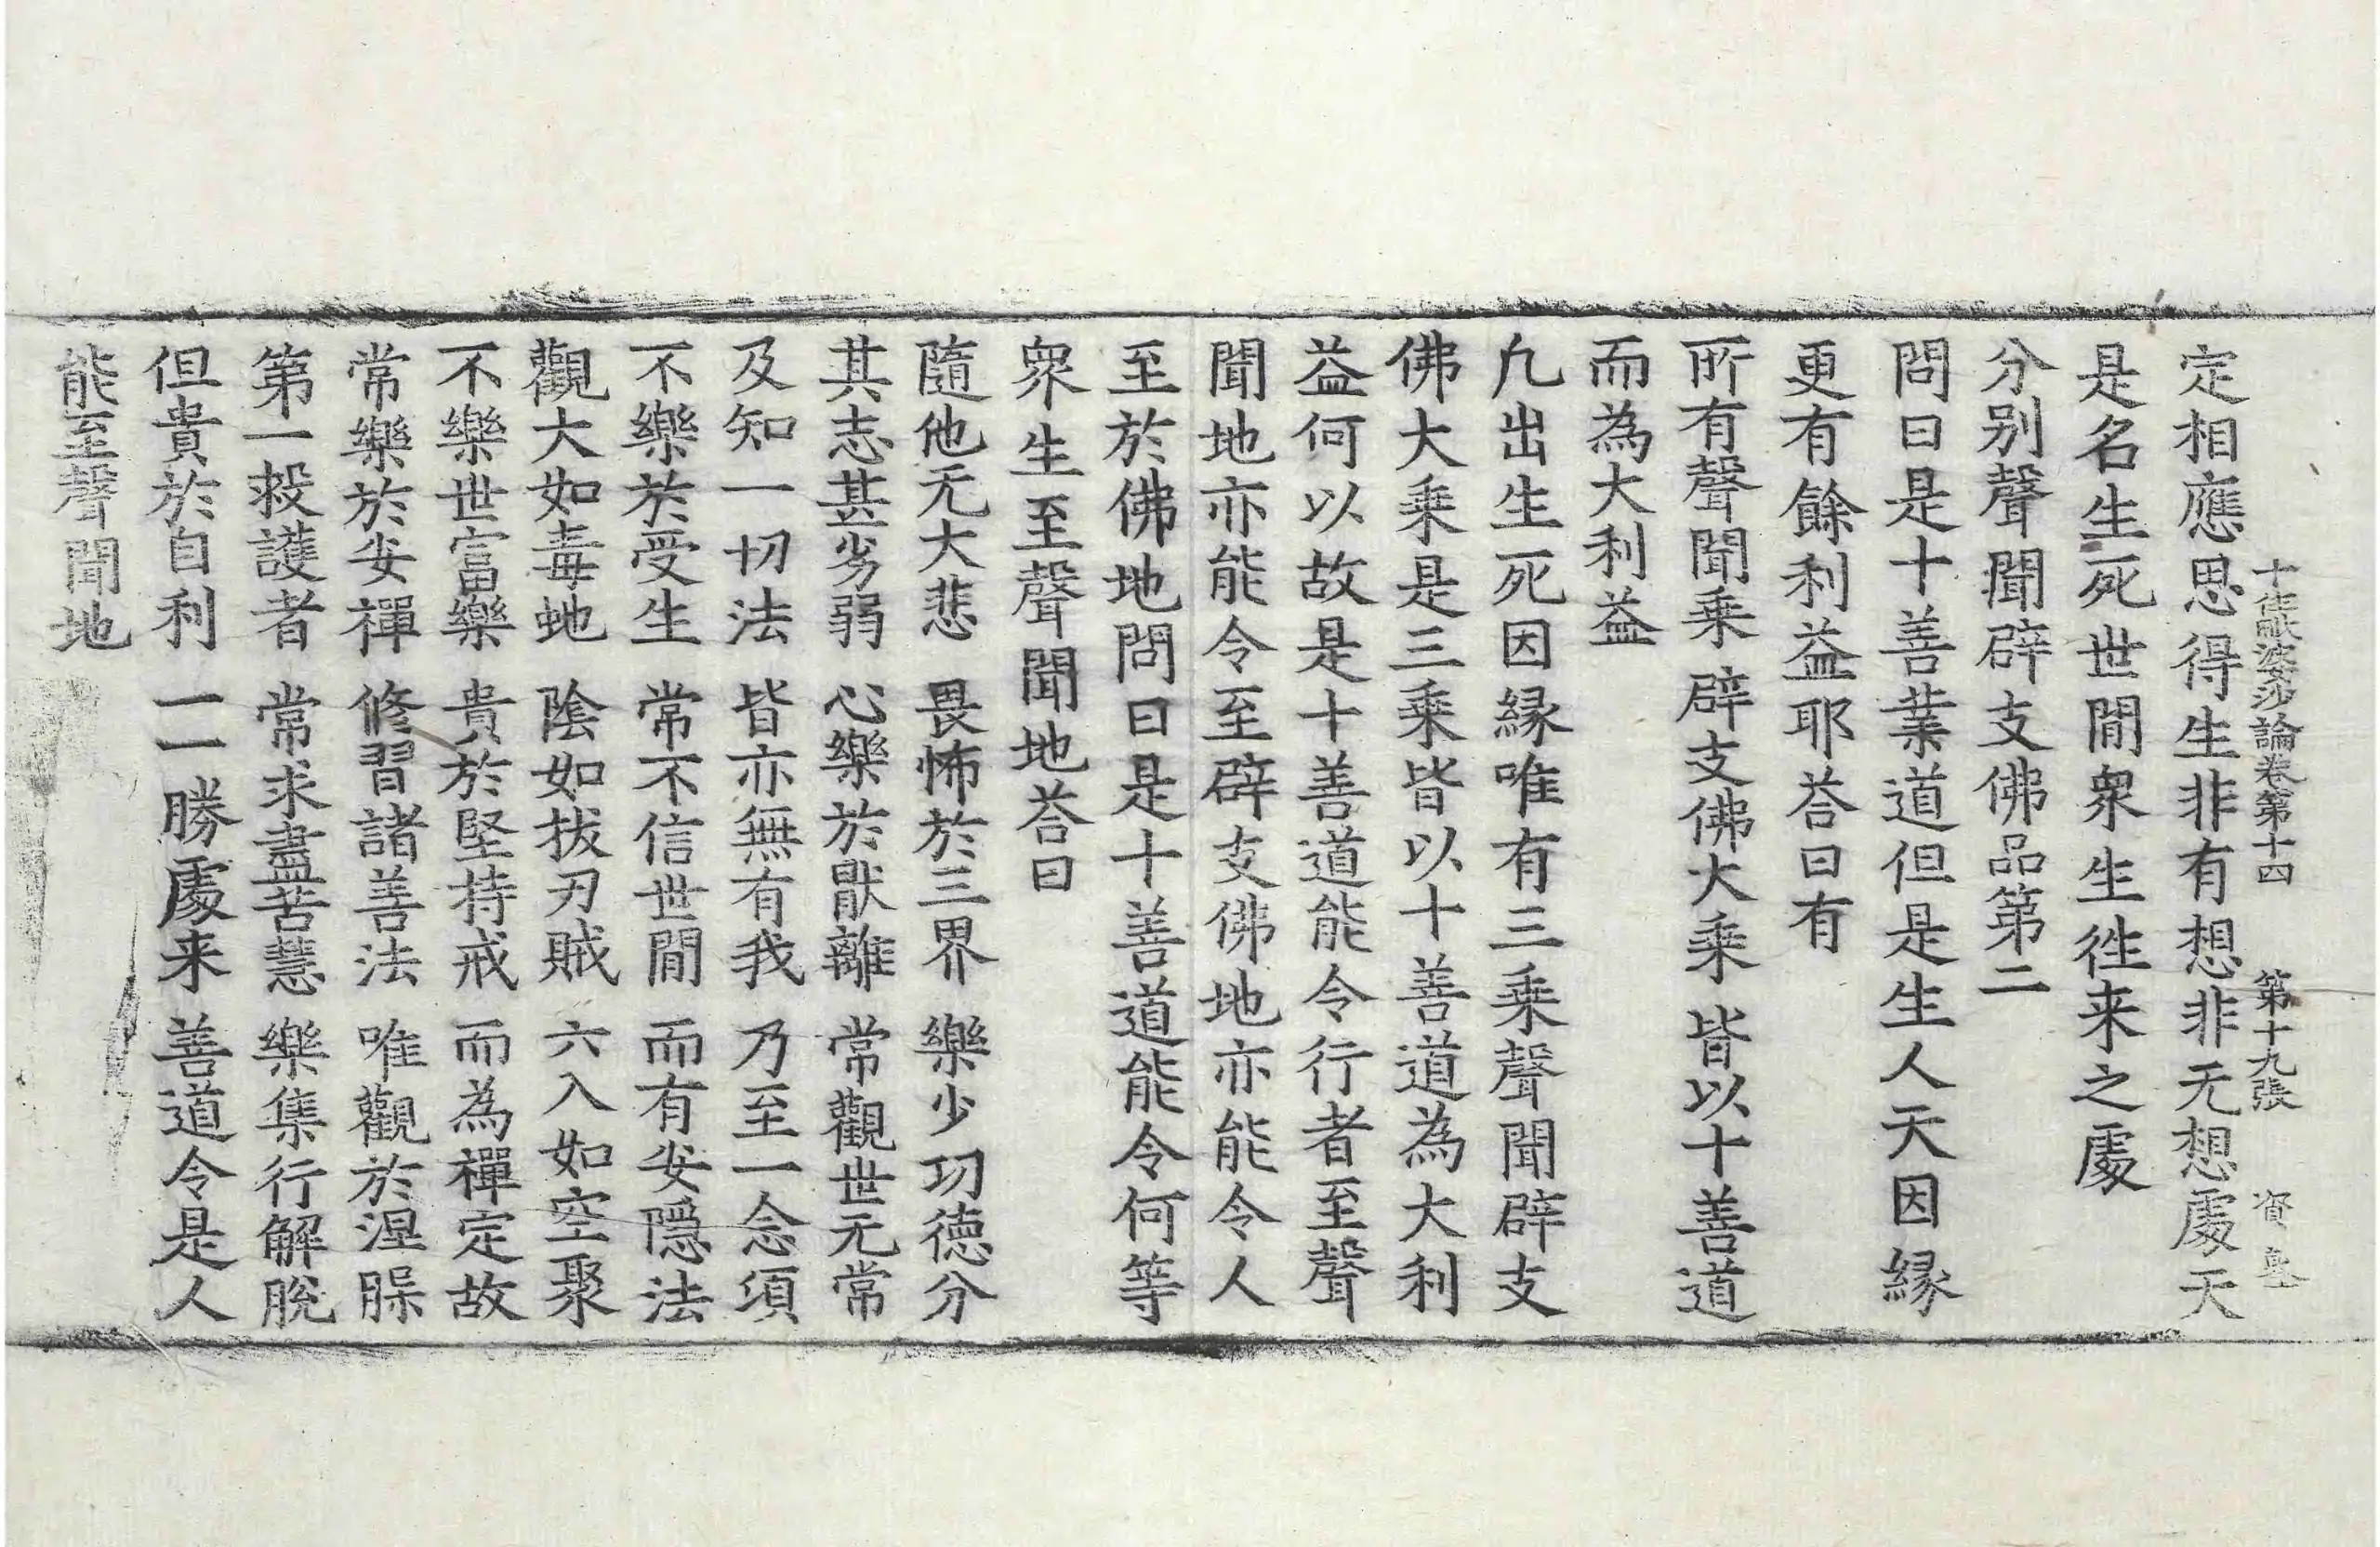 十住毗婆沙論卷第十四 第十九張 資
定相應思得生非有想非无想處天
是名生死世間衆生徃来之處
分別聲聞辟支佛品第二
問曰是十善業道但是生人天因縁
更有餘利益耶荅曰有
所有聲聞乘 辟支佛大乘 皆以十善道
而為大利益
凡出生死因縁唯有三乘聲聞辟支
佛大乘是三乘皆以十善道為大利
益何以故是十善道能令行者至聲
聞地亦能令至辟支佛地亦能令人
至於佛地問曰是十善道能令何等
衆生至聲聞地荅曰
隨他无大悲 畏怖於三界 樂少功德分
其志甚劣弱 心樂於猒離 常觀世无常
及知一切法 皆亦無有我 乃至一念須
不樂於受生 常不信世間 而有安隱法
觀大如毒虵 陰如拔刃賊 六入如空聚
不樂世富樂 貴於堅持戒 而為禪定故
常樂於安禪 修習諸善法 唯觀於涅槃
第一救護者 常求盡苦慧 樂集行解脫
但貴於自利 二勝處来 善道令是人
能至聲聞地